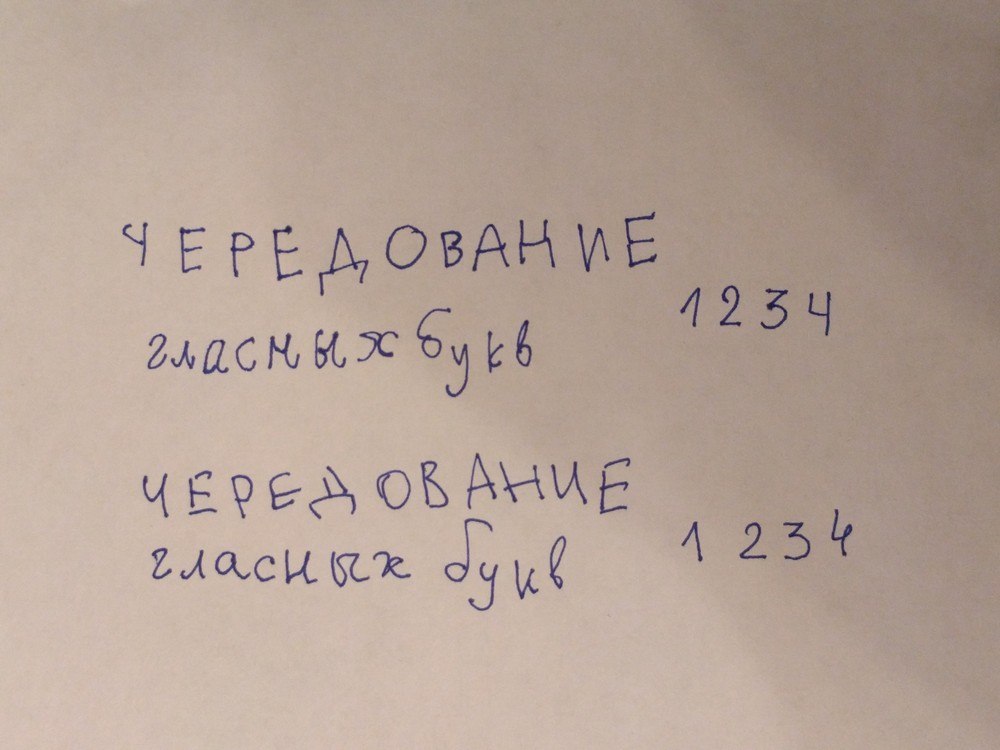 ЧЕРЕДОВАНИЕ
гласных букв 1234
ЧЕРЕДОВАНИЕ
гласных букв 1 234